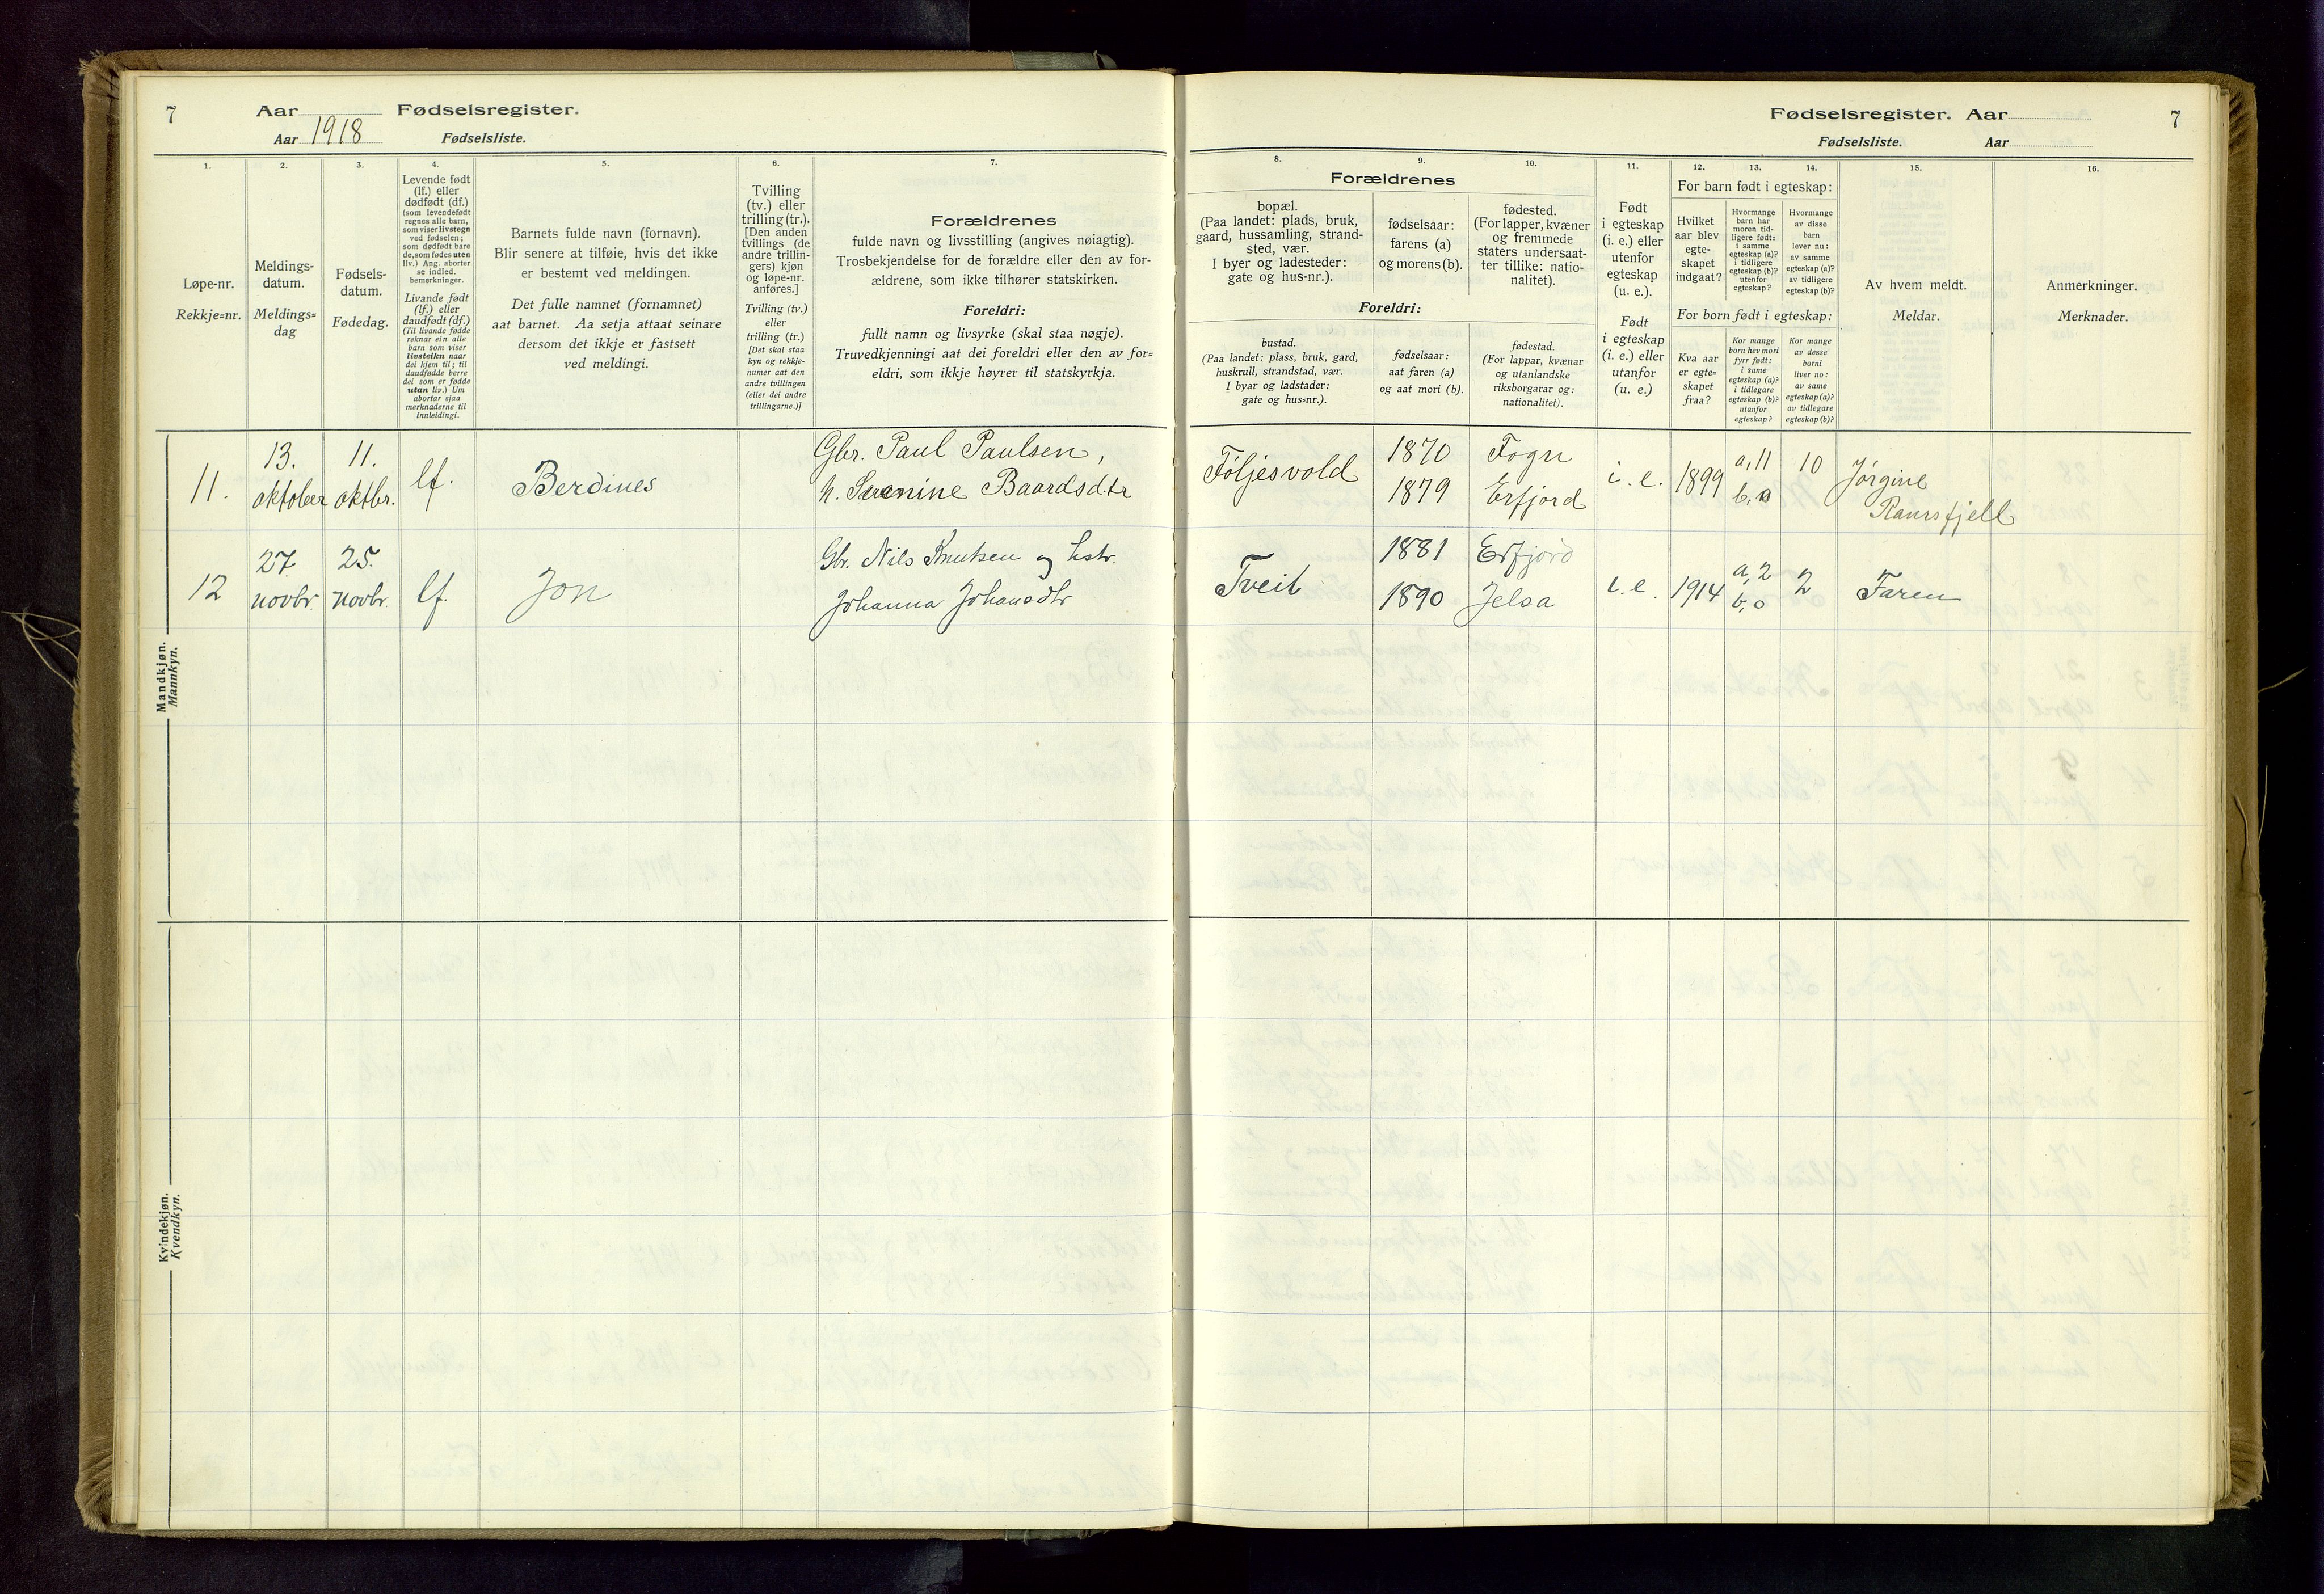 7
Aar Fødselsregister.
Aar 1918 Fødselsliste.
1.
2.
3.
4.
5.
6.
7.
Løpe-nr.
Rekkje=nr.
Meldings-
datum.
Meldings=
dag
Fødsels-
datum.
Fødedag.
Levende født
(lf.) eller
dødfødt (df.)
(som levendefødt
regnes alle barn,
som viser livstegn
ved fødselen;
som dødfødt bare
de, som fødes uten
liv.) Ang. aborter
se indled.
bemerkninger.
Livande født
(lf.) eller
daudfødt (df.)
(Til livande fødde
reknar ein alle
barn som viser
livsteikn naar
dei kjem til; til
daudfødde berre
dei som er fødde
utan liv.) Um
abortar sjaa
merknaderne til
innleidingi.
Barnets fulde navn (fornavn).
Blir senere at tilføie, hvis det ikke
er bestemt ved meldingen.
Det fulle namnet (fornamnet)
aat barnet. Aa setja attaat seinare
dersom det ikkje er fastsett
ved meldingi.
Tvilling
(tv.) eller
trilling (tr.).
[Den anden
tvillings (de
andre trillin-
gers) kjøn
og løpe-nr.
anføres.]
Tvilling (tv.)
eller
trilling (tr.)
[Det skal staa
kyn og rekkje-
numer aat den
andre tvillingen
(eller dei andre
trillingarne.)]
Forældrenes
fulde navn og livsstilling (angives nøiagtig).
Trosbekjendelse for de forældre eller den av for-
ældrene, som ikke tilhører statskirken.
Foreldri:
fullt namn og livsyrke (skal staa nøgje).
Truvedkjenningi aat dei foreldri eller den av for=
eldri, som ikkje høyrer til statskyrkja.
Mandkjøn.
Mannkyn.
11.
13.
oktober
11.
oktbr.
lf.
Berdines
Gbr. Paul Paulsen,
h. Serenine Baardsdtr
12
27.
novbr.
25.
novbr.
lf.
Jon
Gbr. Nils Knutsen og hstr.
Johanna Johansdtr
Kvindekjøn.
Kvendkyn.
Fødselsregister. Aar
Fødselsliste. Aar
7
8.
9.
10.
11.
12.
13.
14.
15.
16.
Forældrenes
bopæl.
(Paa landet: plads, bruk,
gaard, hussamling, strand-
sted, vær.
I byer og ladesteder:
gate og hus-nr.).
fødselsaar:
farens (a)
og morens (b).
fødested.
(For lapper, kvæner
og fremmede
staters undersaat-
ter tillike: natio-
nalitet).
Foreldri:
bustad.
(Paa landet: plass, bruk, gard,
huskrull, strandstad, vær.
I byar og ladstader:
gate og hus=nr.).
fødselsaar:
aat faren (a)
og aat mori (b).
fødestad.
(For lappar, kvænar
og utanlandske
riksborgarar og:
nationalitet).
Født
i egteskap
(i. e.) eller
utenfor
egteskap
(u. e.).
Født
i egteskap
(i. e.) eller
utanfor
(u. e.)
For barn født i egteskap:
Hvilket
aar blev
egte-
skapet
indgaat?
Hvormange
barn har
moren tid-
ligere født:
i samme
egteskap (a)?
i tidligere
egteskap (b)?
utenfor
egteskap?
Hvormange
av disse
barn
lever nu:
av samme
egteskap (a)?
av tidligere
egteskap (b)?
For born født i egteskap:
Kva aar
er egte=
skapet
fraa?
Kor mange
born hev mori
fyrr født:
i same
egteskap (a)?
i tidlegare
egteskap (b)?
utanfor
egteskap?
Kor mange
av desse
borni
liver no:
av same
egteskap (a)?
av tidlegare
egteskap (b)?
Av hvem meldt.
Meldar.
Anmerkninger.
Merknader.
Føljesvold
1870
1879
Fogn
Erfjord
i. e.
1899
a, 11
b, 0
10
Jørgine
Ramsfjell
Tveit
1881
1890
Erfjord
Jelsa
i. e.
1914
a, 2
b, 0
2
Faren